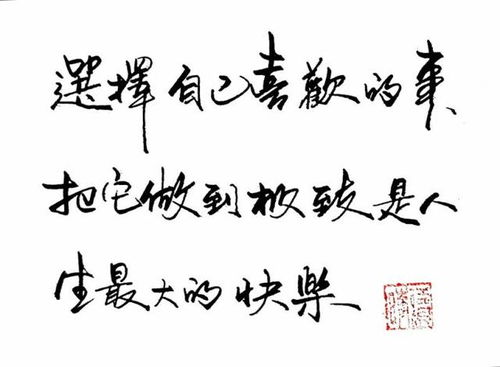 選擇自己喜歡的事、
把它做到极致是人
生最大的快樂